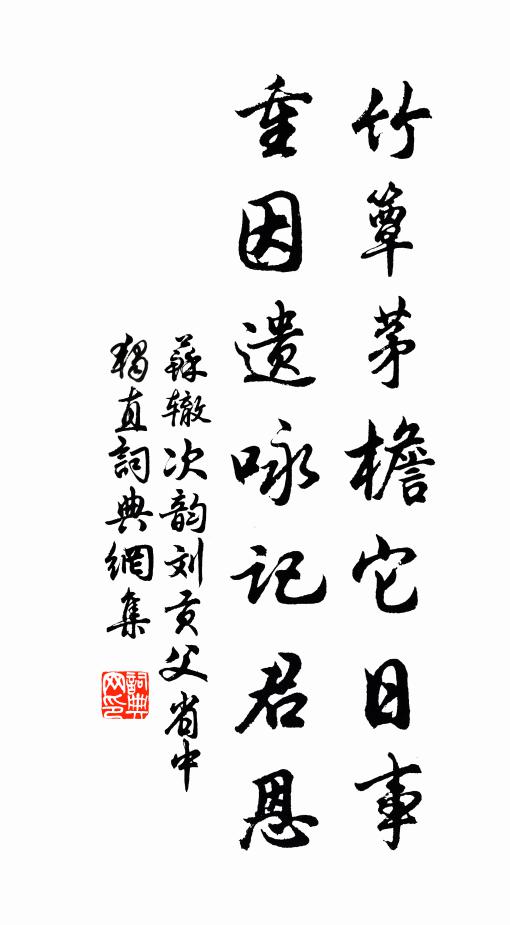 竹簟茅檐它日事
重因遗咏记君恩
蘇辙次韵刘贡父省中
獨直詞典網集
詞典网印